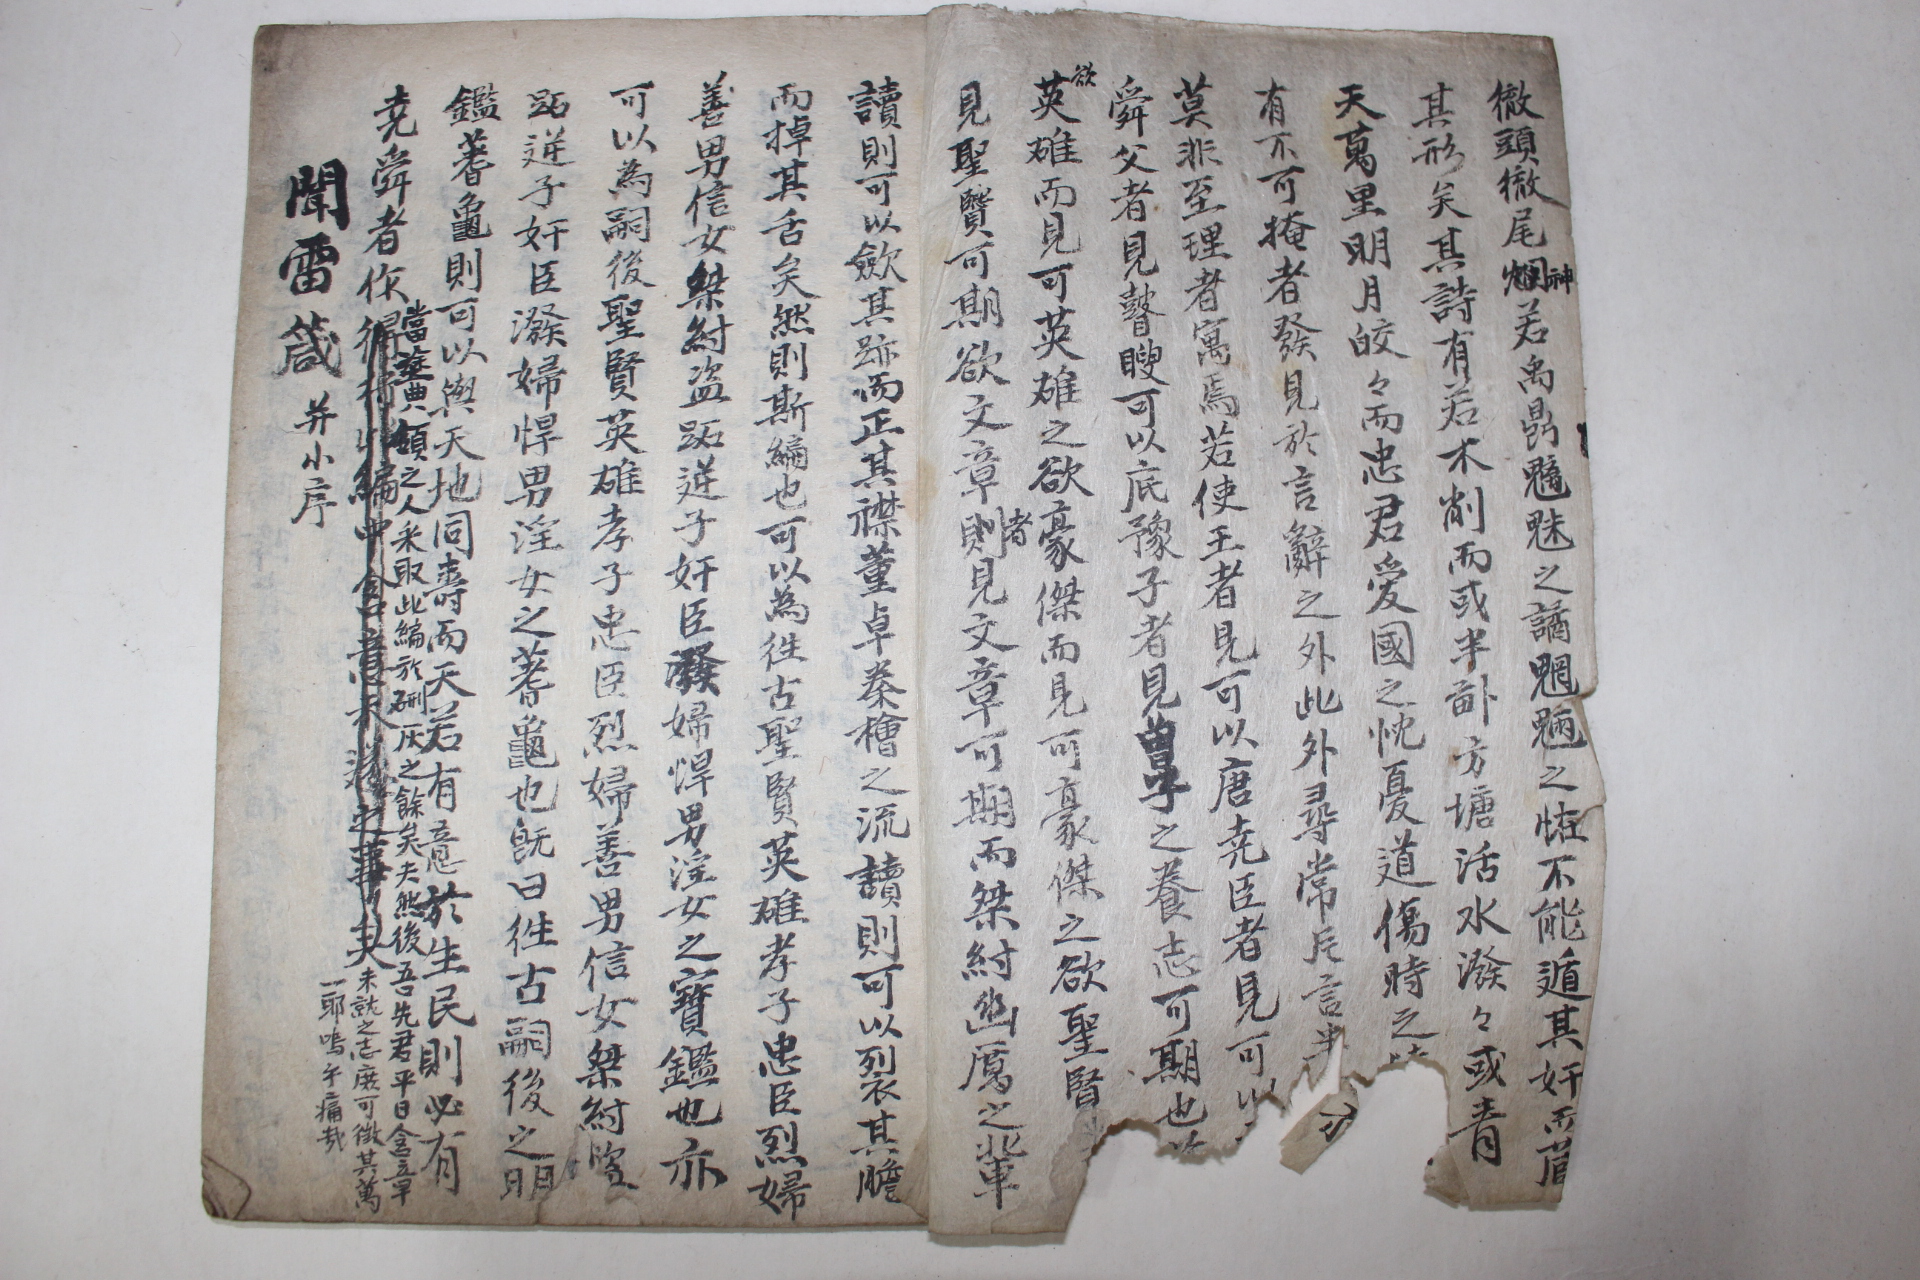 徹頭徹尾烱神若禹鼎魑魅之譎魍魎之怪不能遁其奸而
其形矣其詩有若木削而或半畝方塘活水潑々或青
天萬里明月皎々而忠君愛國之忱憂道傷時之
有不可掩者發見於言辭之外此外尋常片言
莫非至理者寓焉若使王者見可以唐堯臣者見可以
舜父者見瞽瞍可以底豫子者見曽子之養志可期也
英欲雄而見可英雄之欲豪傑而見可豪傑之欲聖賢
見聖賢可期欲文章則者見文章可期而桀紂幽厲之輩
讀則可以斂其跡而正其襟董卓秦檜之流讀則可以裂其膽
而掉其舌矣然則斯編也可以為徃古聖賢英雄孝子忠臣烈婦
善男信女桀紂盜跖逆子奸臣發婦悍男淫女之寶鑑也亦
可以為嗣後聖賢英雄孝子忠臣烈婦善男信女桀紂盜
跖逆子奸臣潑婦悍男淫女之蓍龜也旣曰徃古嗣後之明
鑑蓍龜則可以與天地同壽而天若有意於生民則必有
堯舜者作
當典之人采取此編於刪灰之餘矣夫然後吾先君平日含章
未就之志庶可徵其萬
一耶嗚乎痛哉
聞雷箴 并小序